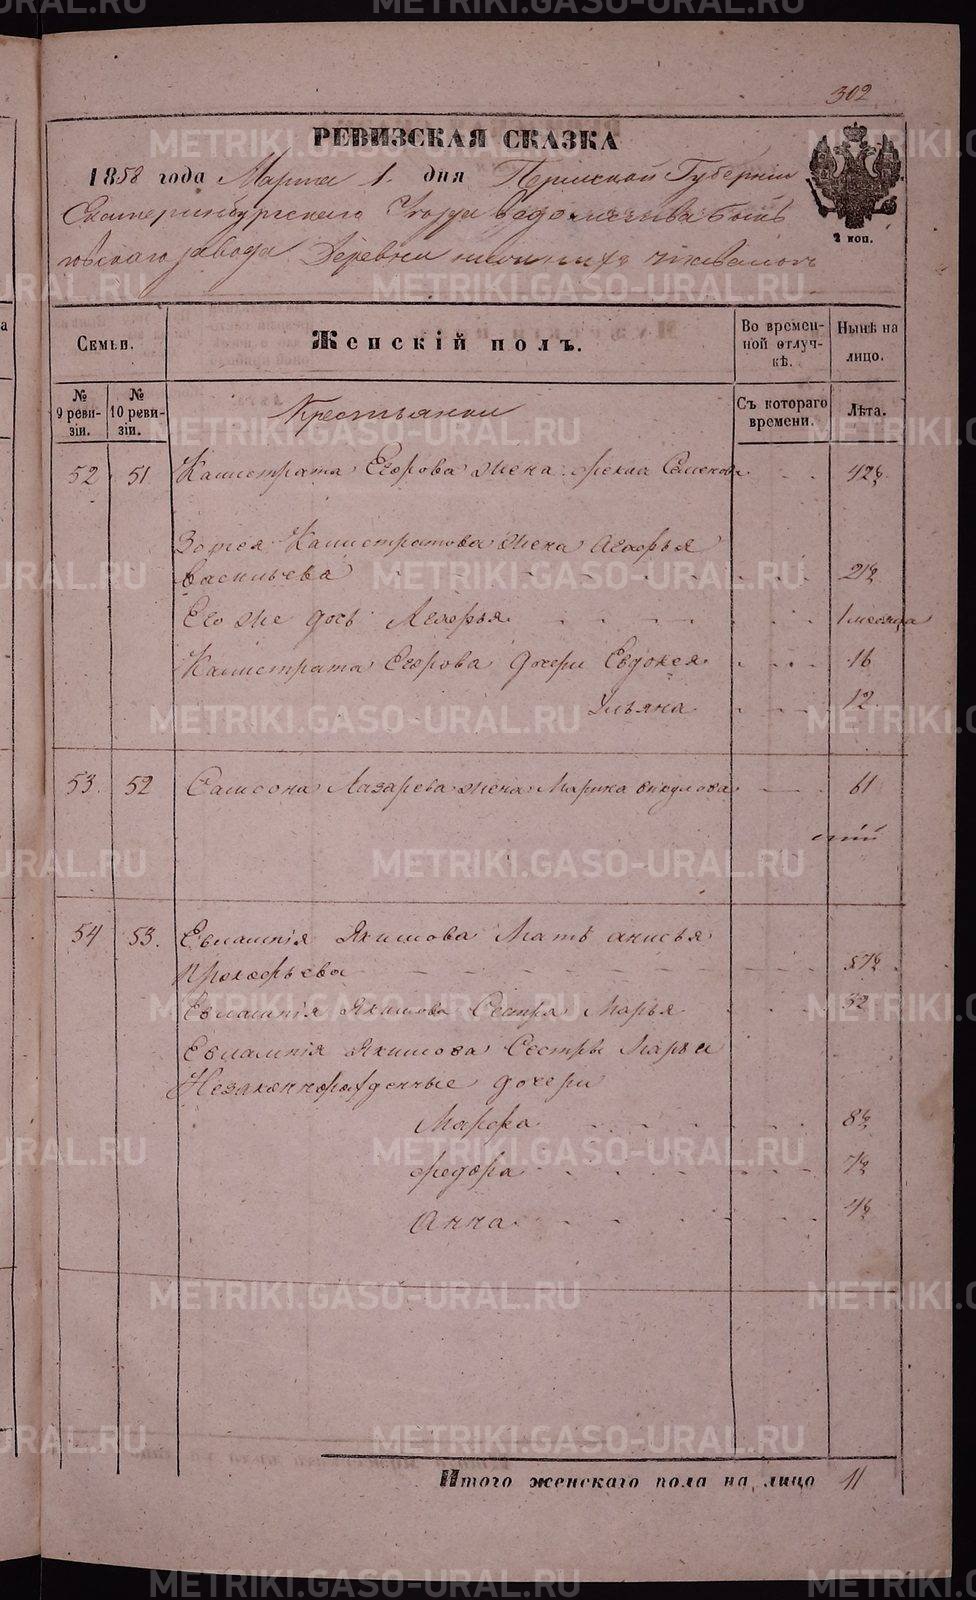 302
РЕВИЗСКАЯ СКАЗКА
1858 года Марта 1. дня Пермской Губернии
Екатеринбургскаго Уезда ведомства
завода Деревни
2 коп.
Семьи.
Женскій полъ.
Во времен-
ной отлуч-
кѣ.
Нынѣ на
лицо.
№
9 реви-
зіи.
№
10 реви-
зіи.
Крестьянки
Съ котораго
времени.
Лѣта.
52 51 Калистрата Егорова жена Семенова 42½
Калистратова жена Агафья
Васильева 21½
Его же дочь Агафья 1 месяца
Калистрата Егорова дочери Евдокея 16
Ульяна 12
53. 52 Самсона Лазарева жена Марика Викулова 61
54 53. Евлампія Якимова Мать анисья
Прокофьева 57½
Евлампія Якимова Сестра Марья 32
Евлампія Якимова Сестры Марьи
Незаконнорожденные дочери
Марфа 8½
Федора 7½
Анна 4½
Итого женскаго пола на лицо 11
METRIKI.GASO-URAL.RU